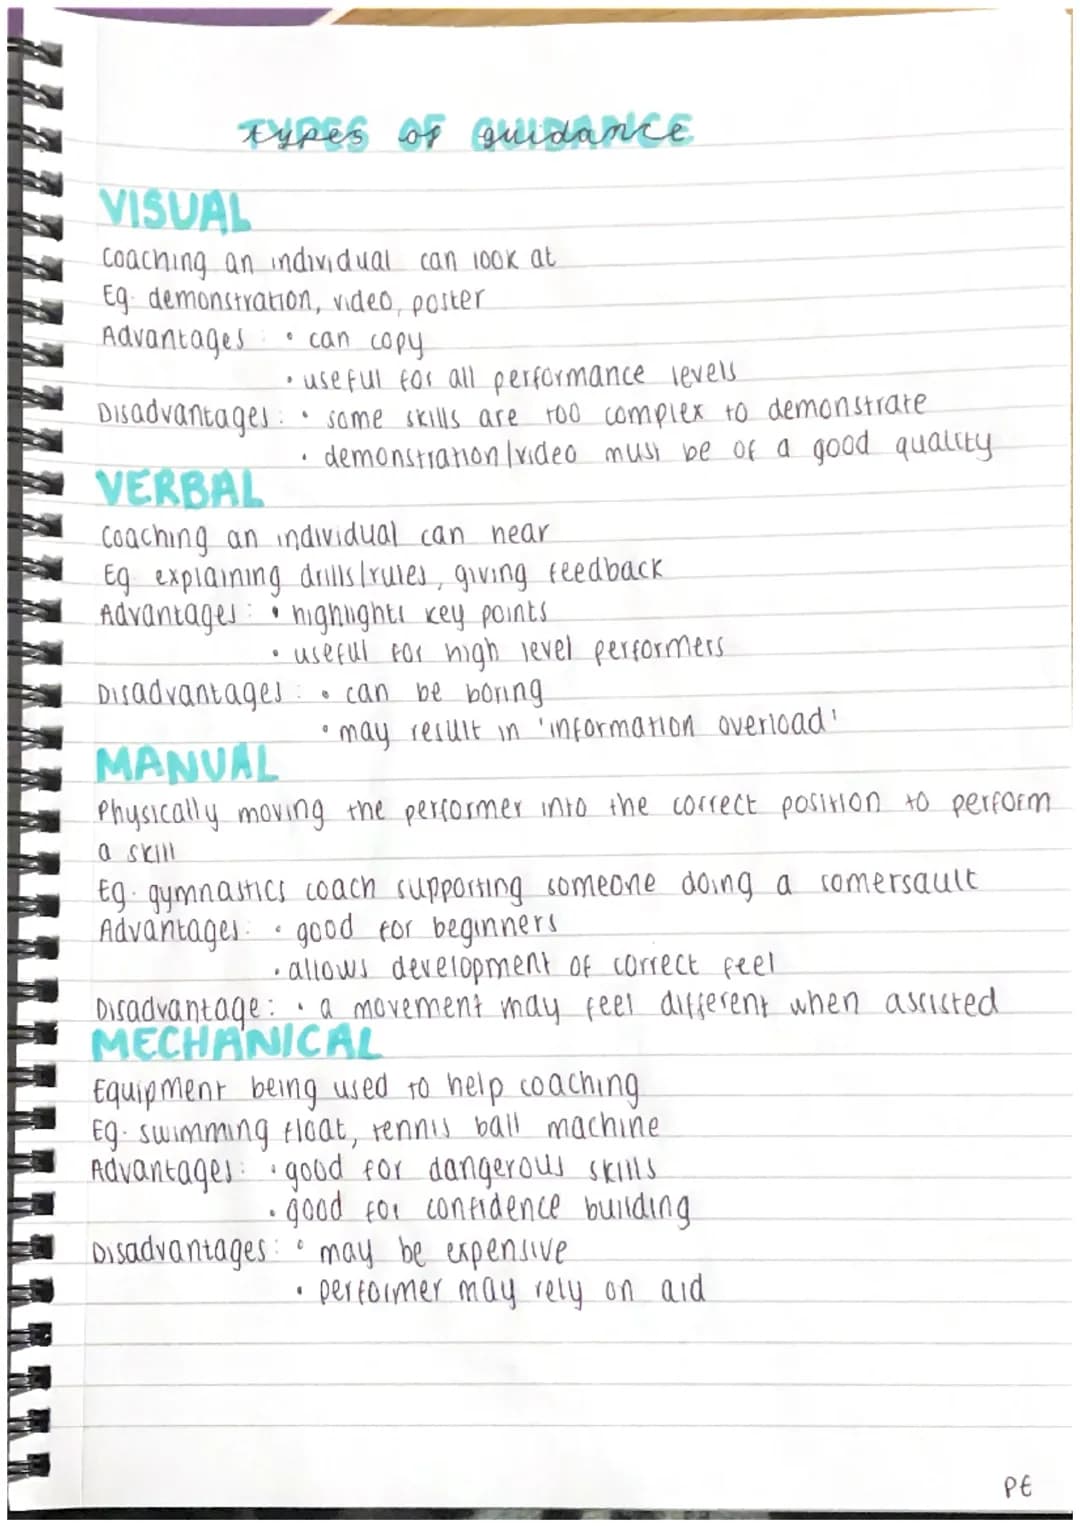 types of guidance
VISUAL
Coaching an individual can look at
Eg. demonstration, video, poster
Advantages: • can copy
• useful for all performance levels
Disadvantages: • some skills are too complex to demonstrate
• demonstration/video must be of a good quality
VERBAL
Coaching an individual can hear
Eg. explaining drills/rules, giving feedback
Advantages: • highlights key points
• useful for high level performers
Disadvantages: • can be boring
• may result in 'information overload'
MANUAL
Physically moving the performer into the correct position to perform
a skill
Eg. gymnastics coach supporting someone doing a somersault
Advantages: • good for beginners
• allows development of correct feel
Disadvantage: • a movement may feel different when assisted
MECHANICAL
Equipment being used to help coaching
Eg. swimming float, tennis ball machine
Advantages: • good for dangerous skills
• good for confidence building
Disadvantages: • may be expensive
• performer may rely on aid
PE